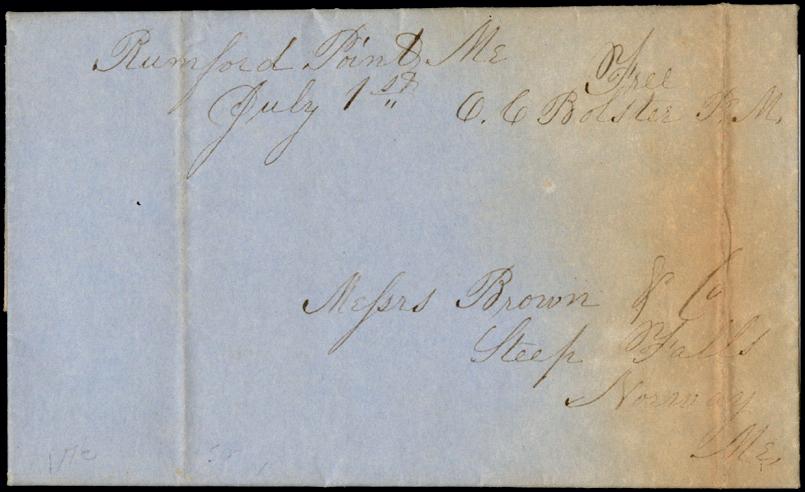 Rumford Point Me
July 1st
Free
O. C Bolster P. M.
Messrs Brown & Co
Steep Falls
Norway
Me,